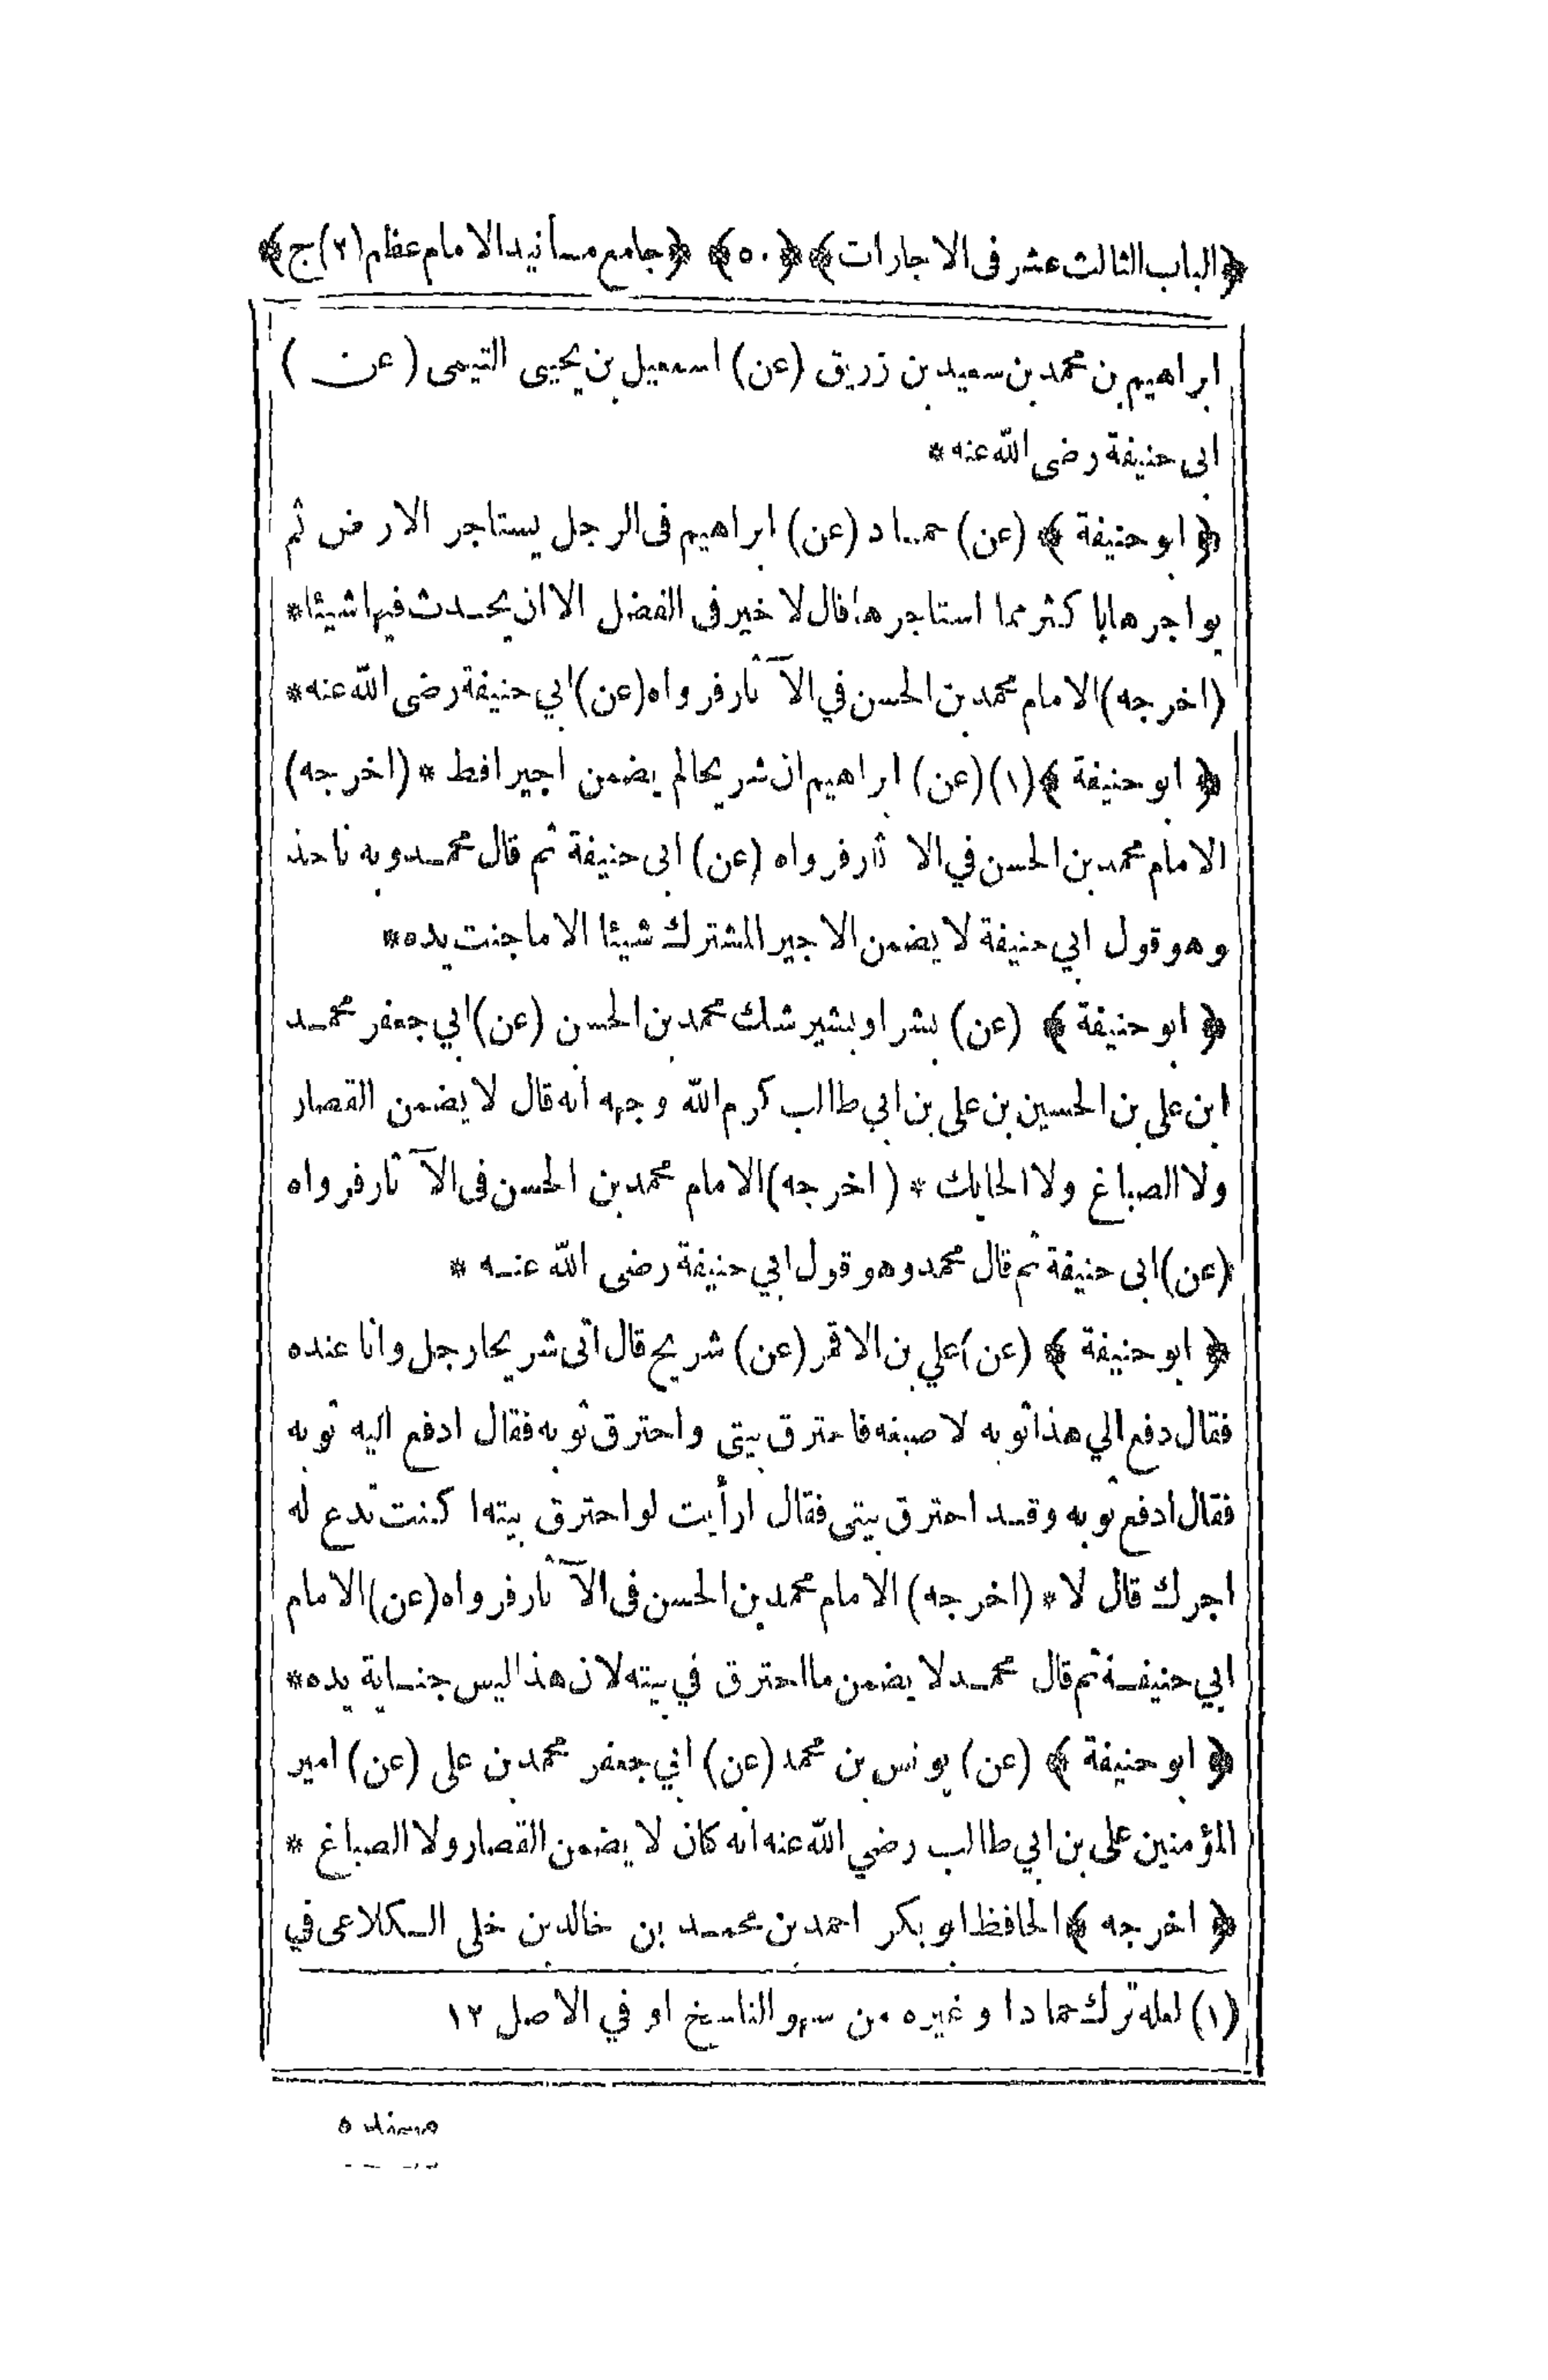 ﴿الباب الثالث عشر فى الاجارات﴾ ﴿٥٠﴾ ﴿جامع مسأنيد الامام عظام (٢) ج﴾
ابراهيم بن محمد بن سعيد بن زريق (عن) اسمعيل بن يحيى التيمى (عن)
ابى حنيفة رضى الله عنه *
﴿ ابو حنيفة ﴾ (عن) حماد (عن) ابراهيم فى الرجل يستاجر الارض ثم
يواجرها باكثر مما استاجرها قال لا خير فى الفضل الا ان يحدث فيها شيئا *
(اخرجه) الامام محمد بن الحسن في الآثار فرواه (عن) ابي حنيفة رضى الله عنه *
﴿ ابو حنيفة ﴾ (١) (عن) ابراهيم ان شريحا لم يضمن اجيرا قط * (اخرجه)
الامام محمد بن الحسن في الاثار فرواه (عن) ابى حنيفة ثم قال محمد وبه ناخذ
وهو قول ابي حنيفة لا يضمن الاجير المشترك شيئا الا ما جنت يده *
﴿ ابو حنيفة ﴾ (عن) بشر او بشير شك محمد بن الحسن (عن) ابي جعفر محمد
ابن على بن الحسين بن على بن ابي طالب كرم الله وجهه انه قال لا يضمن القصار
ولا الصباغ ولا الحايك * (اخرجه) الامام محمد بن الحسن فى الآثار فرواه
(عن) ابى حنيفة ثم قال محمد وهو قول ابي حنيفة رضى الله عنه *
﴿ ابو حنيفة ﴾ (عن) علي بن الاقمر (عن) شريح قال اتى شريحا رجل وانا عنده
فقال دفع الي هذا ثوبه لاصبغه فاحترق بيتى واحترق ثوبه فقال ادفع اليه ثوبه
فقال ادفع ثوبه وقد احترق بيتى فقال ارأيت لو احترق بيته اكنت تدع له
اجرك قال لا * (اخرجه) الامام محمد بن الحسن فى الآثار فرواه (عن) الامام
ابي حنيفة ثم قال محمد لا يضمن ما احترق في بيته لان هذا ليس جناية يده *
﴿ ابو حنيفة ﴾ (عن) يونس بن محمد (عن) ابي جعفر محمد بن على (عن) امير
المؤمنين على بن ابي طالب رضي الله عنه انه كان لا يضمن القصار ولا الصباغ *
﴿ اخرجه ﴾ الحافظ ابو بكر احمد بن محمد بن خالد بن خلى الكلاعى في
(١) لعله ترك حمادا وغيره من سهو الناسخ او في الاصل ١٢
مسنده